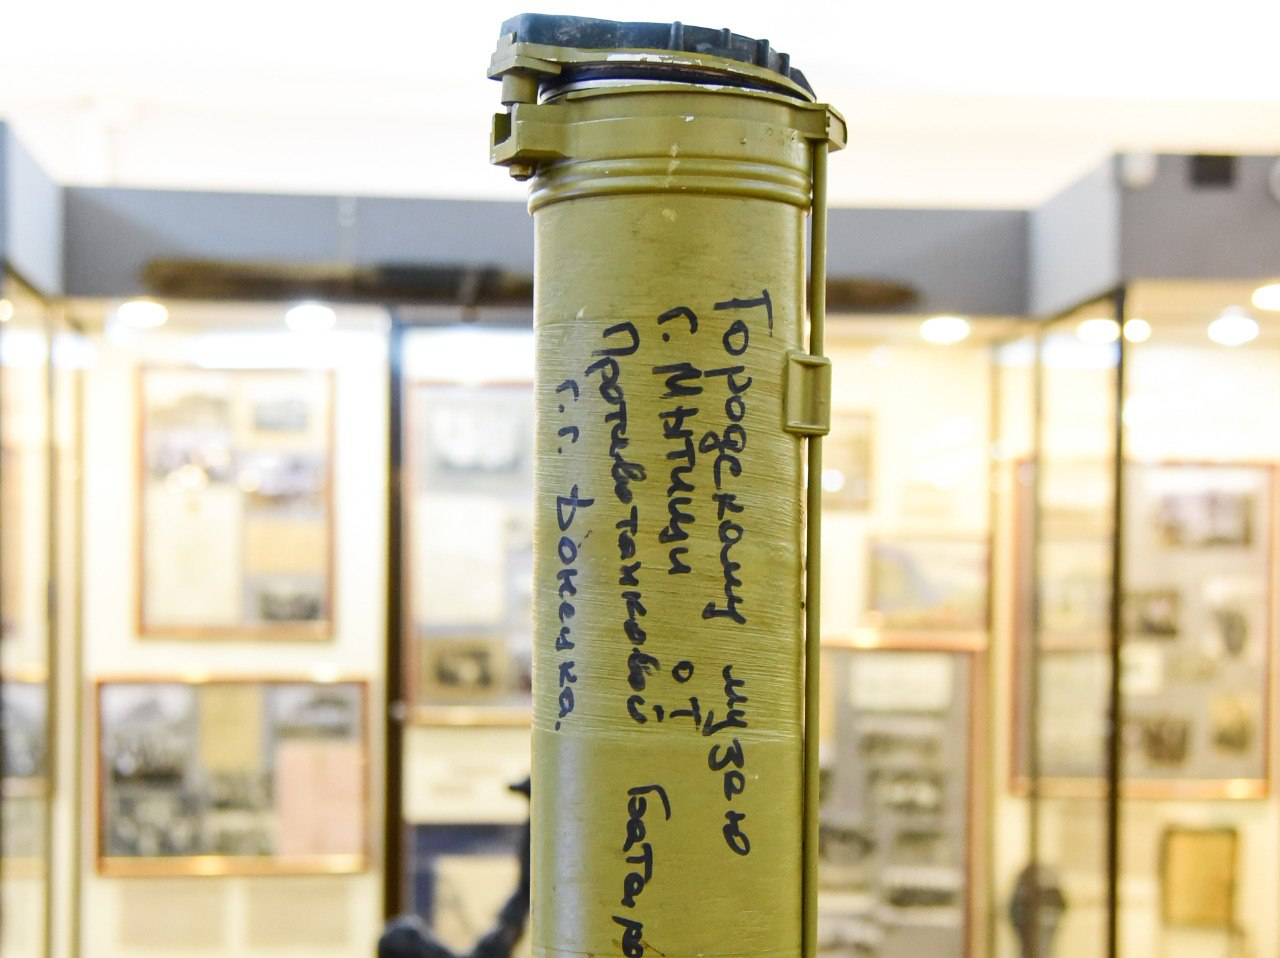 Городскаму музаю
г. Мытищи от
Противотанковой Батаре
г.г. Донецка.